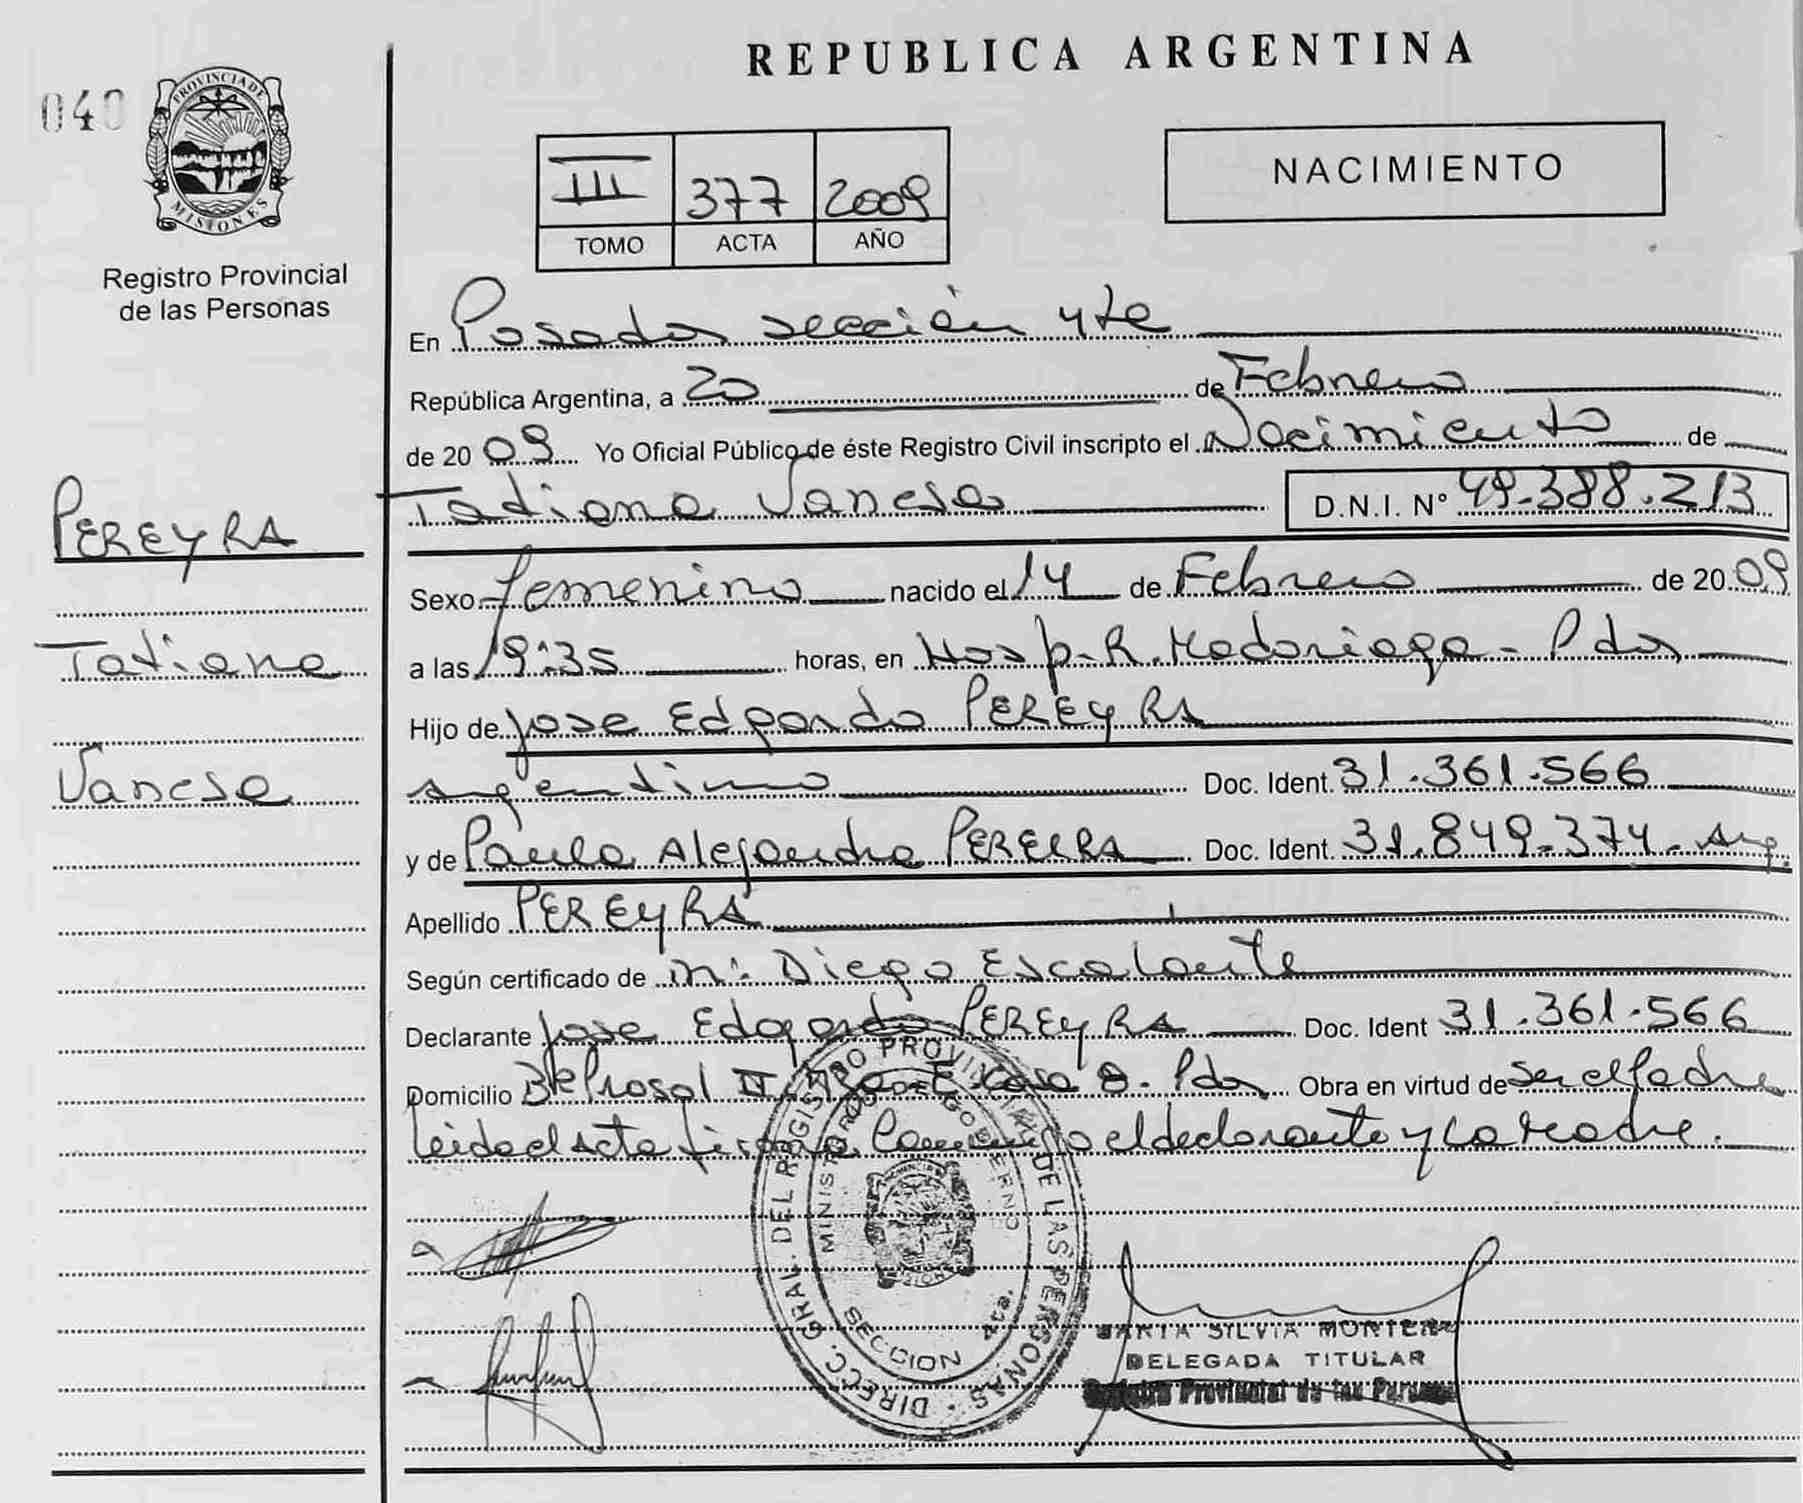 REPUBLICA ARGENTINA
040
PROVINCIA DE
MISIONES
Registro Provincial
de las Personas
III 377 2009
TOMO ACTA AÑO
NACIMIENTO
En Posadas sección 4ta
República Argentina, a 20 de Febrero
de 2009 Yo Oficial Público de éste Registro Civil inscripto el Nacimiento de
Tatiana Vanesa D.N.I. Nº 49.388.213
PEREYRA
Tatiana
Vanesa
Sexo femenino nacido el 14 de Febrero de 2009
a las 19:35 horas, en Hosp. R. Madariaga - Pdas
Hijo de Jose Edgardo PEREYRA
argentino Doc. Ident. 31.361.566
y de Paula Alejandra PEREIRA Doc. Ident. 31.849.374 - Arg.
Apellido PEREYRA
Según certificado de Diego Escalante
Declarante Jose Edgardo PEREYRA Doc. Ident 31.361.566
Domicilio II casa 8. Pdas Obra en virtud de ser el Padre
Leida el Acta firman Conmigo el declarante y la Madre.
DIRECC. GRAL. DEL REGISTRO PROVINCIAL DE LAS PERSONAS
MINISTERIO DE GOBIERNO
SECCION 4ta.
SILVIA
DELEGADA TITULAR
Registro Provincial de las Personas